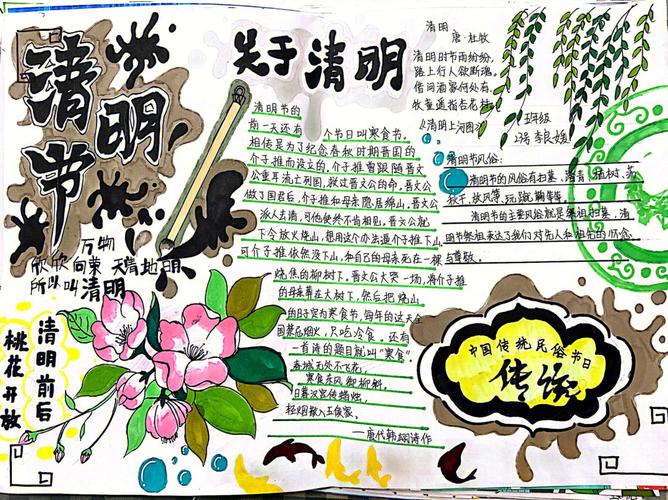 清明节
万物
欣欣向荣 天清地明
所以叫清明
清明前后
桃花开放
关于清明
清明节的
前一天还有一个节日叫寒食节。
相传是为了纪念春秋时期晋国的
介子推而设立的,介子推曾跟随晋文
公重耳流亡列国,救过晋文公的命。晋文公
做了国君后,介子推和母亲隐居绵山,晋文公
派人去请,可他使终不肯相见,晋文公就
下令放火烧山,想用这个办法逼介子推下山,
可介子推依然没下山,和自己的母亲死在一棵
烧焦的柳树下,晋文公大哭一场,将介子推
的母亲葬在大树下,然后把烧山
的日子定为寒食节,每年的这天全
国禁忌烟火,只吃冷食,还有
一首诗的题目就叫"寒食"。
春城无处不飞花,
寒食东风御柳斜。
日暮汉宫传蜡烛,
轻烟散入五侯家。
——唐代韩翃诗作
清明
唐·杜牧
清明时节雨纷纷,
路上行人欲断魂。
借问酒家何处有,
牧童遥指杏花村。
《清明上河图》
清明节风俗:
清明节的风俗有扫墓、踏青、插树、荡
秋千、放风筝、玩蹴鞠等等
清明节的主要风俗就是祭祖扫墓,清
明节祭祖表达了我们对先人和祖先的怀念
与尊敬。
中国传统民俗节日
传说